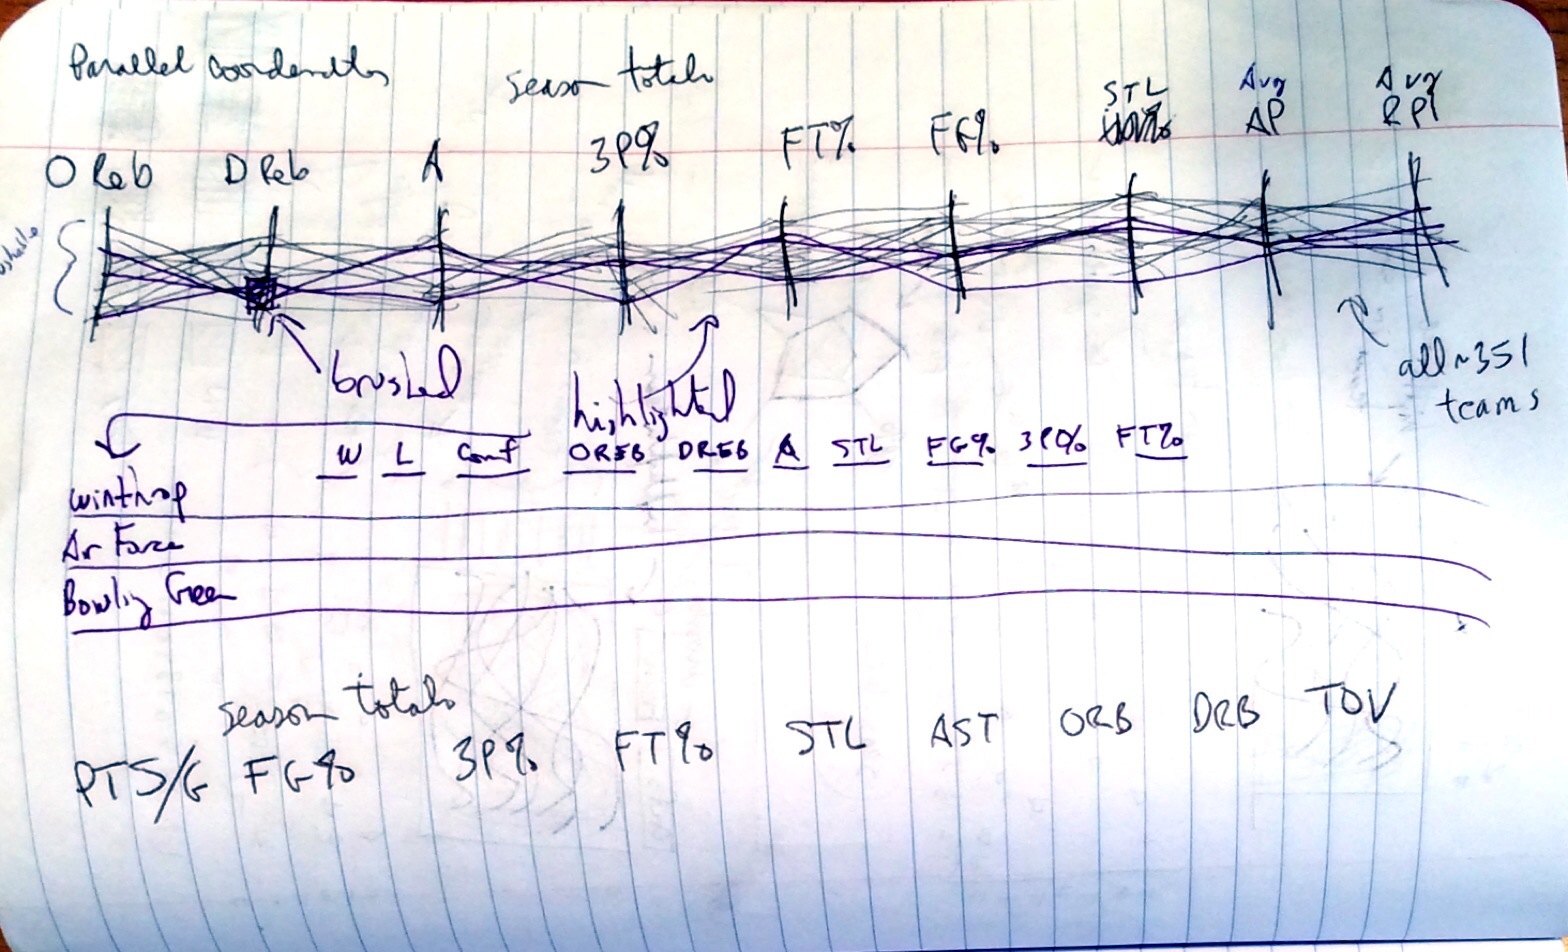 Parallel coordinates
season totals
O Reb D Reb A 3P% FT% FG% STL Avg AP Avg RPI
brushed
highlighted
all ~351
teams
W L Conf OREB DREB A STL FG% 3P% FT%
Winthrop
Air Force
Bowling Green
season totals
PTS/G FG% 3P% FT% STL AST ORB DRB TOV